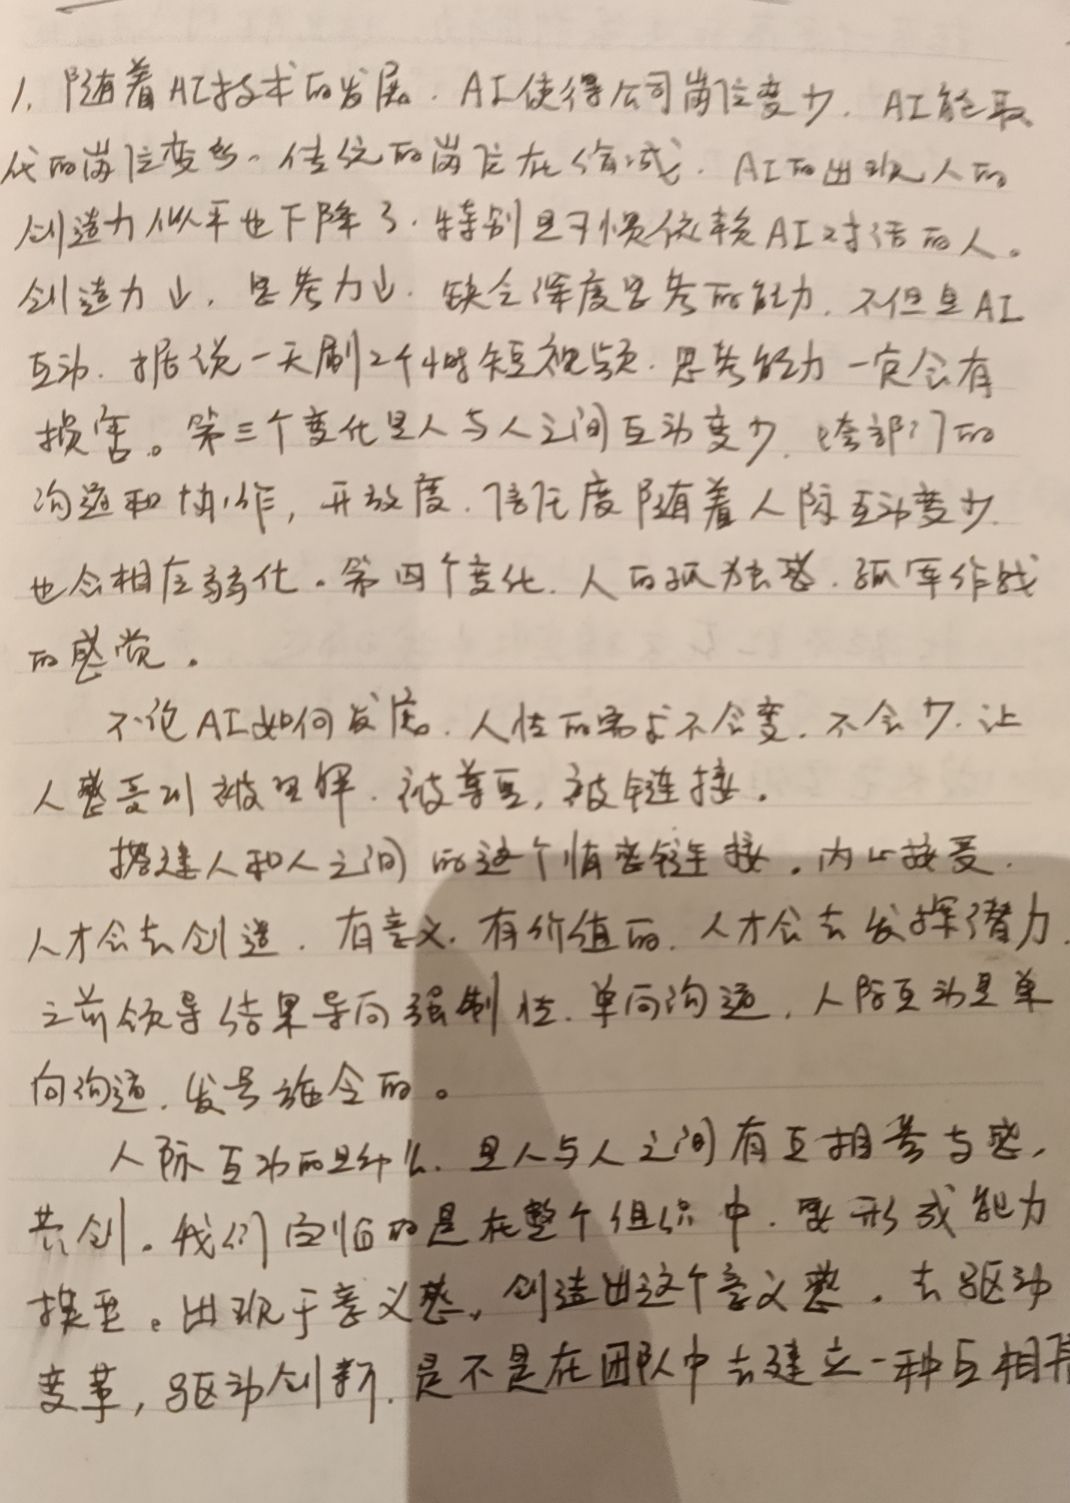 1. 随着AI技术的发展. AI使得公司岗位变少. AI能取
代的岗位变多. 传统的岗位在缩减. AI的出现人的
创造力似乎也下降了. 特别是习惯依赖AI对话的人。
创造力↓. 思考力↓. 缺乏深度思考的能力. 不但是AI
互动. 据说一天刷2个小时短视频. 思考能力一定会有
损害。第三个变化是人与人之间互动变少. 跨部门的
沟通和协作, 开放度. 信任度随着人际互动变少.
也会相应弱化. 第四个变化. 人的孤独感. 孤军作战
的感觉.
不论AI如何发展. 人性的需求不会变. 不会少. 让
人感受到被理解. 被尊重, 被链接.
搭建人和人之间的这个情感链接. 内心接受.
人才会去创造. 有意义. 有价值的. 人才会去发挥潜力.
之前领导结果导向强制性. 单向沟通. 人际互动是单
向沟通. 发号施令的。
人际互动的是什么. 是人与人之间有互相参与感,
共创. 我们面临的是在整个组织中. 要形成能力
模型. 出现于意义感, 创造出这个意义感. 去驱动
变革, 驱动创新. 是不是在团队中去建立一种互相